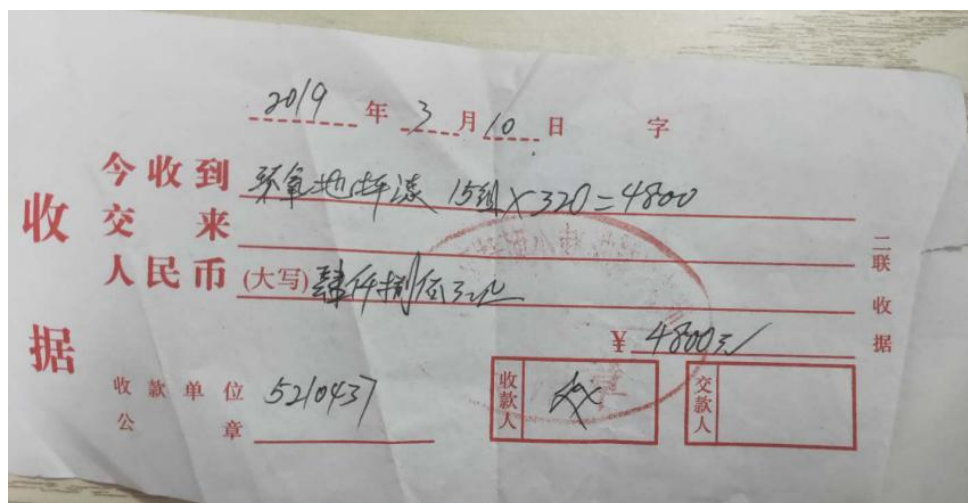 2019年3月10日 字
今收到 环氧地坪漆 15组×320=4800
交来
人民币(大写)肆仟捌佰元正
¥4800元
收据
二联收据
收款单位 5210437
公章
收款人
交款人